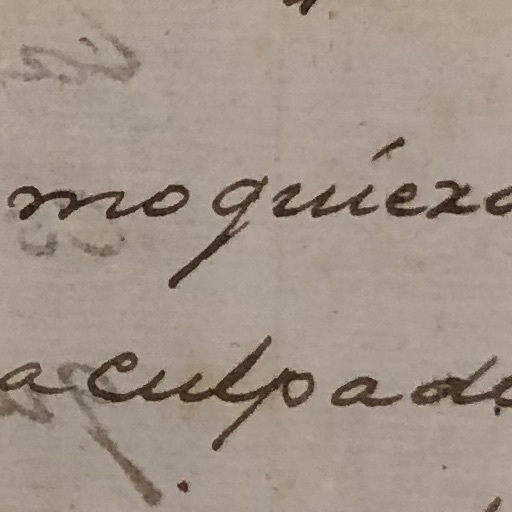 mo quiera
a culpa de